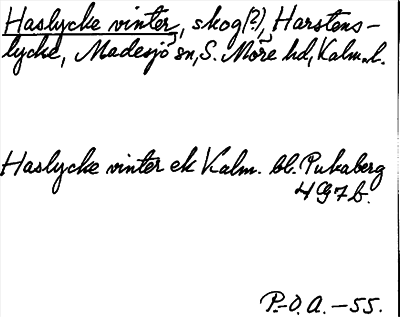 Haslycke vinter, skog(?), Harstens-
lycke, Madesjö sn, S. Möre hd, Kalm. l.
Haslycke vinter ek Kalm. bl. Pukaberg
4 G 7 b.
P.-O.A. -55.